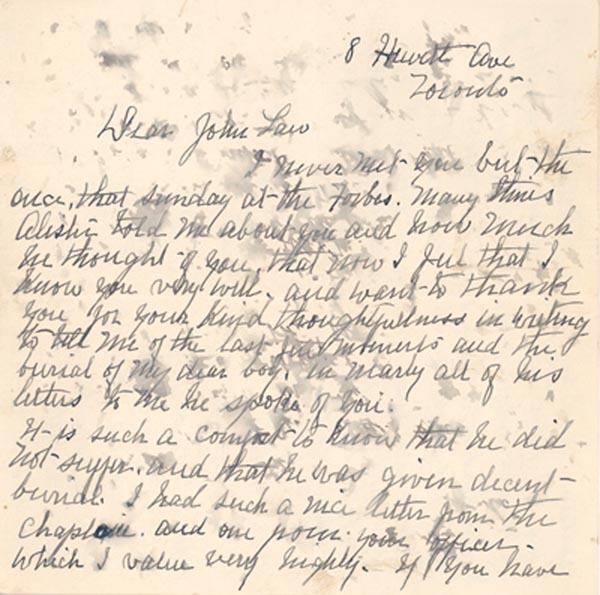 8 Hewitt Ave
Toronto
Dear John Law
I never met you but the
once, that sunday at the Forbes. Many times
told me about you and how much
he thought of you, that now I feel that I
know you very well. and want to thank
you for your kind thoughtfulness in writing
to tell me of the last few moments and the
burial of my dear boy. in nearly all of his
letters to me he spoke of you.
It is such a comfort to know that he did
not suffer. and that he was given decent
burial. I had such a nice letter from the
Chaplain. and one from your officer.
which I value very highly. If you have